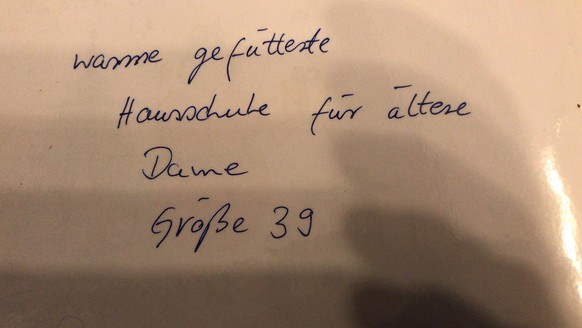 warme gefütterte
Hausschuhe für ältere
Dame
Größe 39